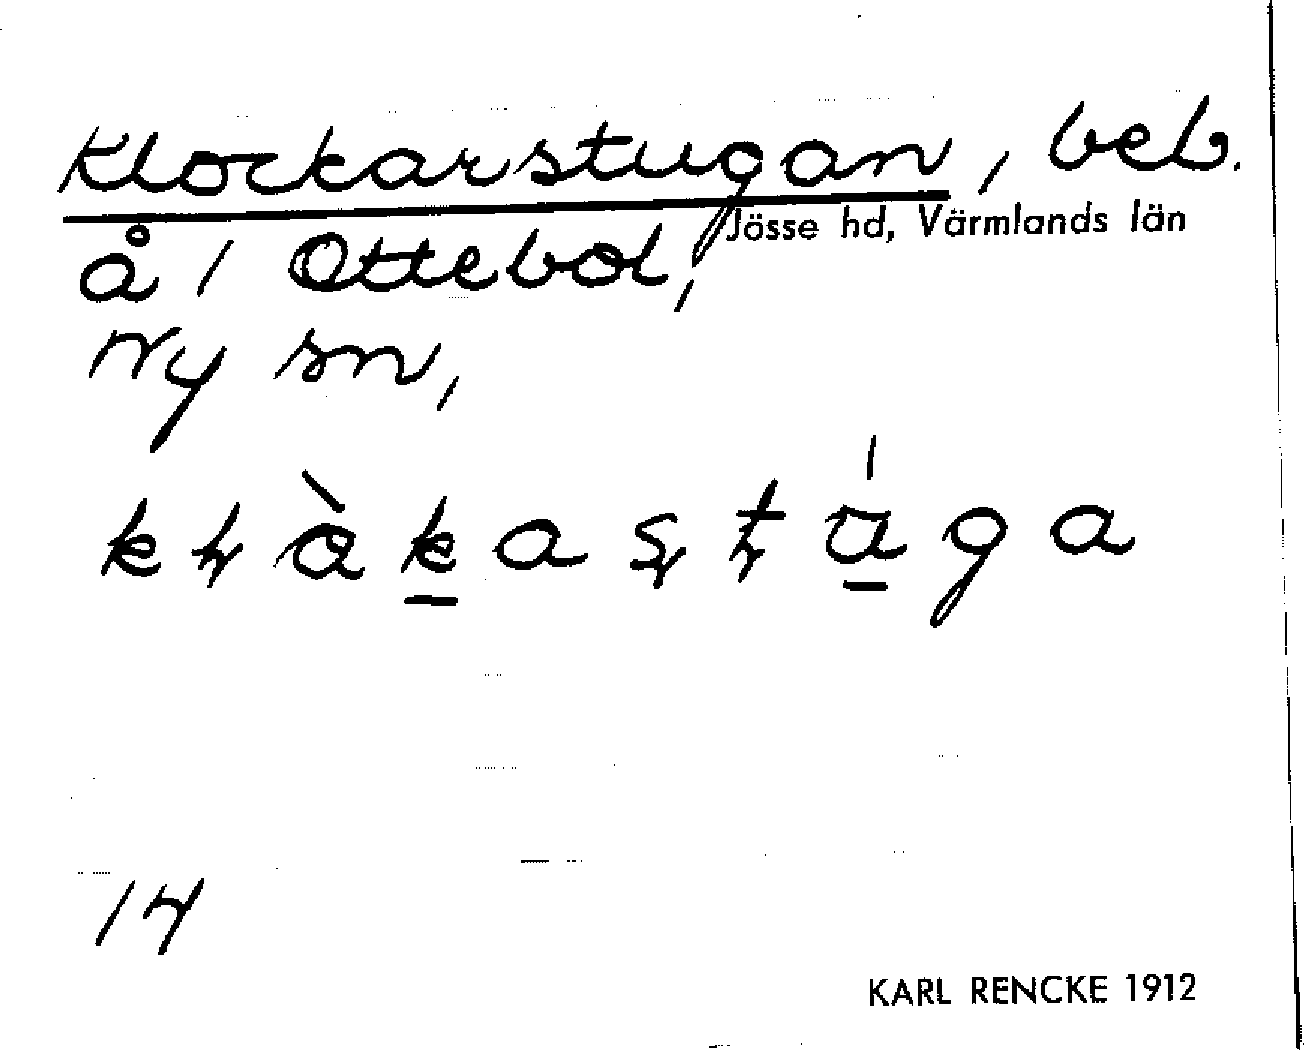 Klockarstugan, beb.
Jösse hd, Värmlands län
å 1 Ottebol,
Ny sn,
14
KARL RENCKE 1912